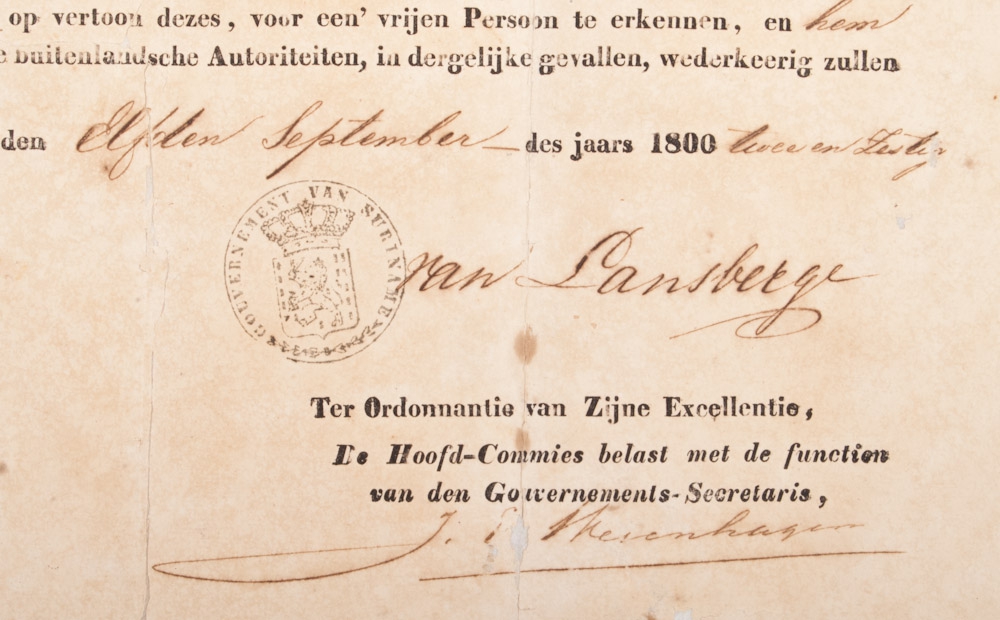 op vertoon dezes, voor een' vrijen Persoon te erkennen, en hem
e buitenlandsche Autoriteiten, in dergelijke gevallen, wederkeerig zullen
den Elfden September des jaars 1800 twee en Zestig
GOUVERNEMENT VAN SURINAME
van Lansberge
Ter Ordonnantie van Zijne Excellentie,
De Hoofd-Commies belast met de function
van den Gouvernements-Secretaris,
J.